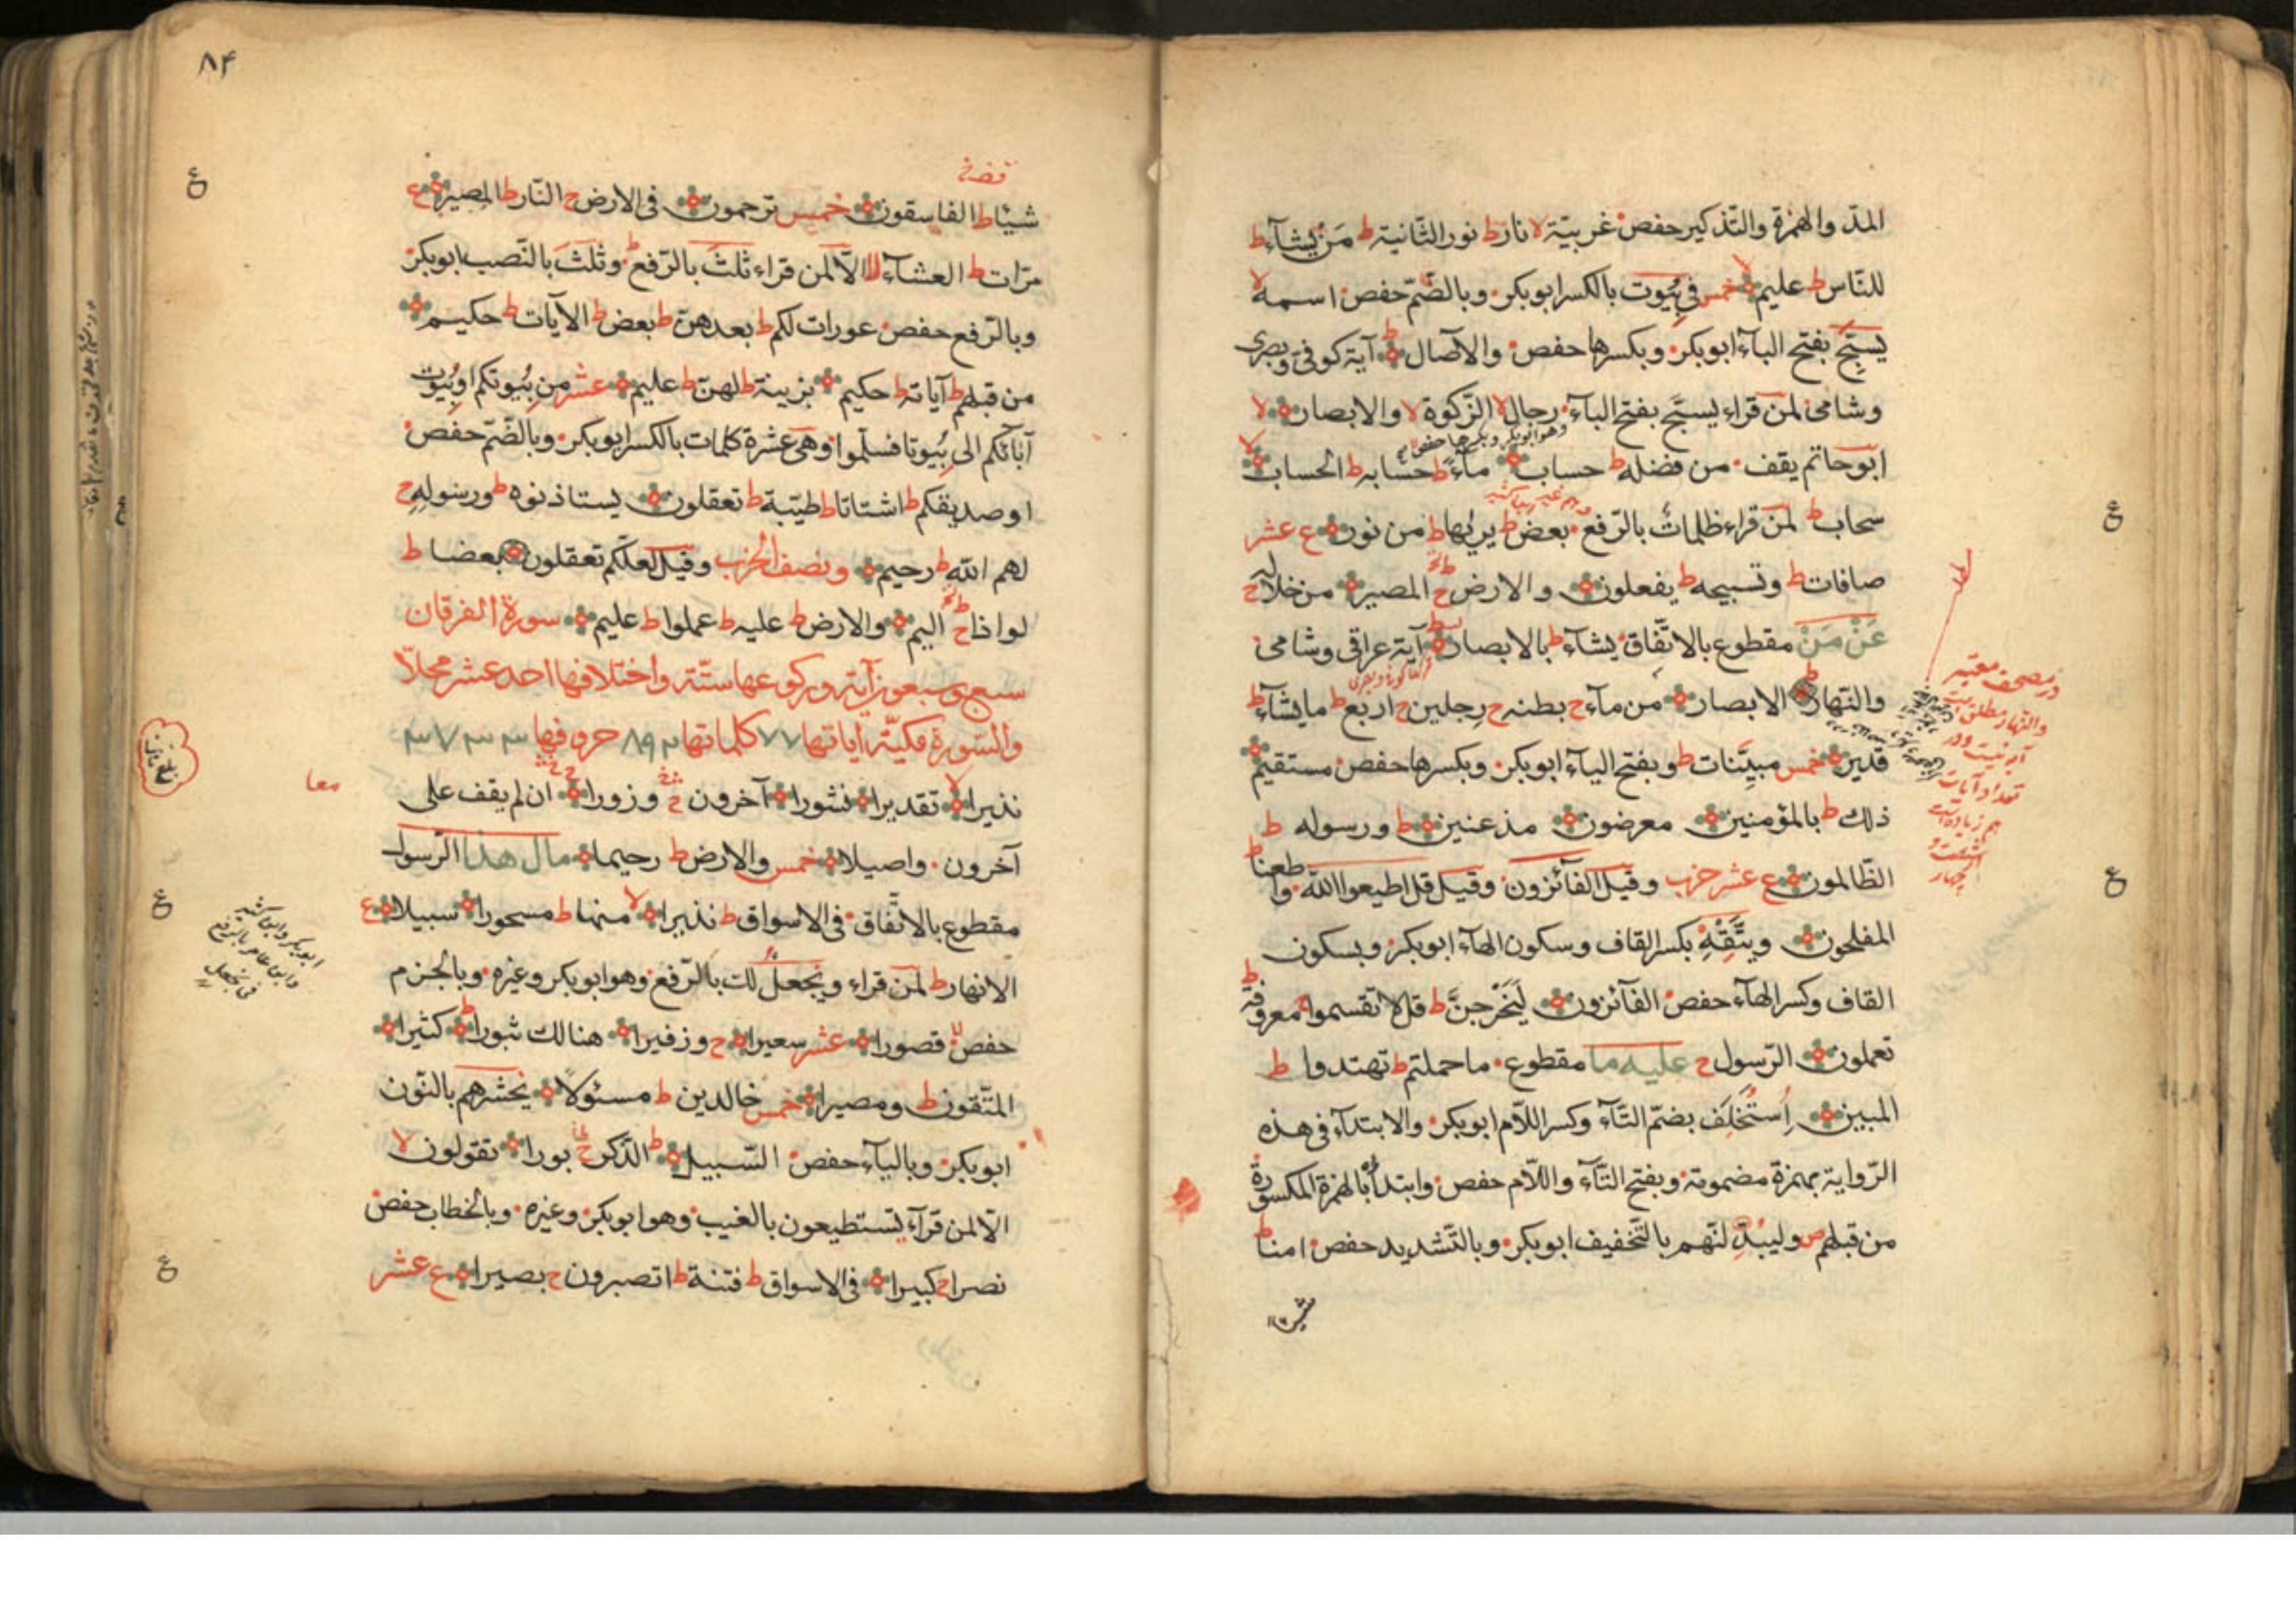 المدّ والهمزة والتّذكير حفص غربيّة لا نار ط نور الثّانية ط مَنْ يشآء ط
للنّاس ط عليم لا خمس في بُيُوت بالكسر ابوبكر وبالضّمّ حفص اسمه لا
يسبّح بفتح البآء ابوبكر وبكسرها حفص والآصال ط آية كوفى وبصرى
وشامى لمن قراء يسبّح بفتح البآء رجال لا الزّكوة لا والابصار لا
وهو ابوبكر وبكسرها حفص
ابوحاتم يقف من فضله ط حساب ماءً ط حسابه ط الحساب لا
سحاب ط لمن قراء ظلمات بالرّفع بعض ط يريها ط من نور ع عشر
صافات ط وتسبيحه ط يفعلون والارض ح المصير من خلاله ح
عَنْ مَنْ مقطوع بالاتّفاق يشآء ط بالابصار آية عراقى وشامى
والنّهار ط الابصار من مآء ح بطنه ح رجلين ح اربع ط ما يشآء ط
قدير خمس مبيّنات ط وبفتح اليآء ابوبكر وبكسرها حفص مستقيم
ذلك ط بالمؤمنين معرضون مذعنين ط ورسوله ط
الظّالمون ع عشر حزب وقيل الفآئزون وقيل قل اطيعوا الله واطعنا ط
المفلحون ويتّقه بكسر القاف وسكون الهآء ابوبكر وبسكون
القاف وكسر الهآء حفص الفآئزون لَيَخْرجنَّ ط قل لا تقسموا ج معروفة ط
تعملون الرّسول ح عليه ما مقطوع ما حملتم ط تهتدوا ط
المبين اُسْتُخْلِفَ بضمّ التّآء وكسر اللّام ابوبكر والابتدآء فى هذه
الرّواية بهمزة مضمومة وبفتح التّآء واللّام حفص وابتدأ بالهمزة المكسورة
من قبلهم ص وليبدّلنّهم بالتّخفيف ابوبكر وبالتّشديد حفص امنا ط
در مصحف معتبر
والنهار مطلق است
آية نيست ودر
تعداد آيات
هم زياده
ع
ع
٨۴
شيئا ط الفاسقون خمس ترحمون فى الارض ح النّار ط المصير ع
مرّات ط العشآء الّا لمن قراء ثَلٰثُ بالرّفع وثَلٰثَ بالنّصب ابوبكر
وبالرّفع حفص عورات لكم ط بعدهنّ ط بعض ط الآيات ط حكيم
من قبلهم ط آياته ط حكيم بزينة ط لهنّ ط عليم عشر من بُيُوتكم او بُيُوت
آبآئكم الى بُيُوتا فسلّموا وهى عشرة كلمات بالكسر ابوبكر وبالضّمّ حفص
او صديقكم ط اشتاتا ط طيّبة ط تعقلون يستاذنوه ط ورسوله ح
لهم الله ط رحيم ونصف الحزب وقيل لعلّكم تعقلون بعضا ط
لواذا ح اليم والارض ط عليه ط عملوا ط عليم سورة الفرقان
سبع وسبعون آية وركوعها ستّة واختلافها احد عشر محلّا
والسّورة مكيّة آياتها ٧٧ كلماتها ٨٩٢ حروفها ٣٧٣٣
نذيرا لا تقديرا نشورا آخرون ح وزورا ان لم يقف على
آخرون واصيلا خمس والارض ط رحيما مال هذا الرّسول
مقطوع بالاتّفاق فى الاسواق ط نذيرا لا منها ط مسحورا سبيلا ع
الانهار ط لمن قراء ويجعلُ لك بالرّفع وهو ابوبكر وغيره وبالجزم
حفص قصورا عشر سعيرا ح وزفيرا هنالك ثبورا ط كثيرا
المتّقون ط ومصيرا خمس خالدين ط مسئولا نحشرهم بالنّون
ابوبكر وباليآء حفص السّبيل ط الذّكر ح بورا تقولون لا
الّا لمن قرآء يستطيعون بالغيب وهو ابوبكر وغيره وبالخطاب حفص
نصرا ح كبيرا فى الاسواق ط فتنة ط اتصبرون ح بصيرا ع عشر
معا
ابوبكر وابن كثير
وابن عامر بالرفع
فى يجعل
ع
ع
ع